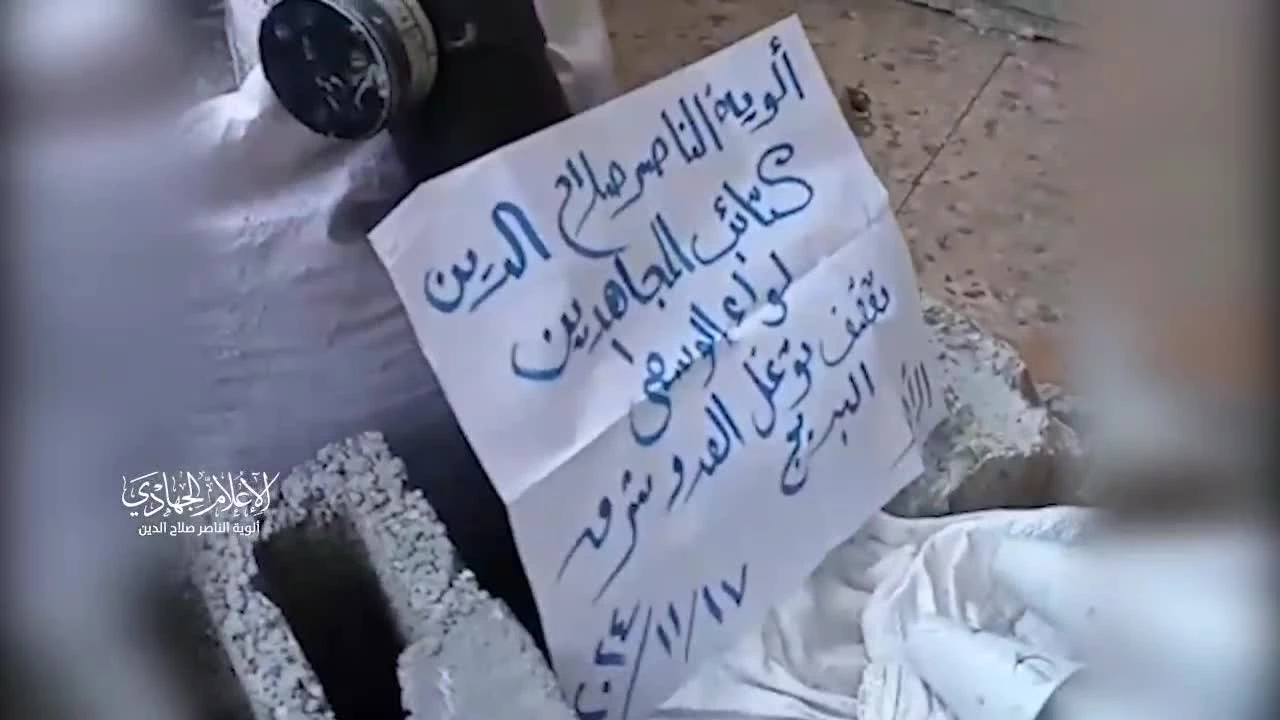 ألوية الناصر صلاح الدين
كتائب المجاهدين
لواء الوسطى
توغل العدو شرق
البريج
٢٠٢٤/١١/١٧
الإعلام الجهادي
ألوية الناصر صلاح الدين